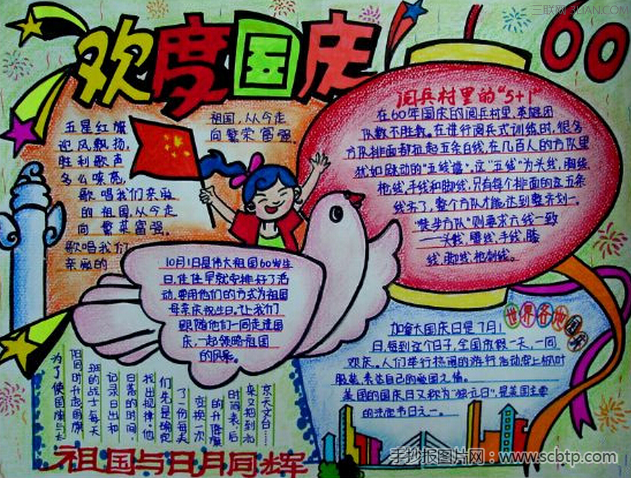 欢度国庆
60
三联网 3LIAN.COM
五星红旗
迎风飘扬,
胜利歌声
多么嘹亮,
歌唱我们亲爱
的祖国,从今走
向繁荣富强。
歌唱我们
亲爱的
祖国,从今走
向繁荣富强。
阅兵村里的“5+1”
在60年国庆的阅兵村里,英雄团
队数不胜数。在进行阅兵式训练时,很多
方队排面都扯起五条白线,在几百人的方队里
犹如跳动的“五线谱”。这“五线”为头线,胸线
枪线,手线和脚线,只有每个排面的这五条
线齐了,整个方队才能达到整齐划一。
“徒步方队”则要求六线一致
——头线,腰线,手线,膝
线,脚线,枪刺线。
10月1日是伟大祖国60岁生
日,佳佳早就安排好了活
动,要用他们的方式为祖国
母亲庆祝生日,让我们
跟随他们一同走进国
庆,一起领略祖国
的风貌。
世界各地国庆
加拿大国庆日是7月1
日,每到这个日子,全国放假一天,一同
欢庆。人们举行热闹的游行活动穿上枫叶
服装,表达自己的爱国之情。
美国的国庆日又称为“独立日”,是美国主要
的法定节日之一。
为了使国旗与太
阳同时升起国旗
班的战士每天
记录日出和
日落的时间,
找出规律,他
们先是确定
了一份每天
的升降旗
时间表,后
来又把到北
京天文台
祖国与日月同辉
手抄报图片网:www.scbtp.com